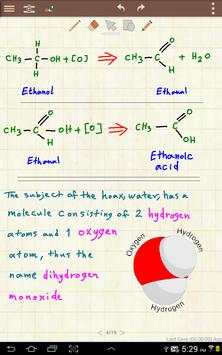 CH3—C—OH + [O] ⇒ CH3—C + H2O
H
H
O
H
Ethanol Ethanal
CH3—C OH + [O] ⇒ CH3—C
O
H
O
OH
Ethanal Ethanoic
acid
The subject of the hoax, water, has a
molecule consisting of 2 hydrogen
atoms and 1 oxygen
atom, thus the
name dihydrogen
monoxide
Oxygen
Hydrogen
Hydrogen
5:29